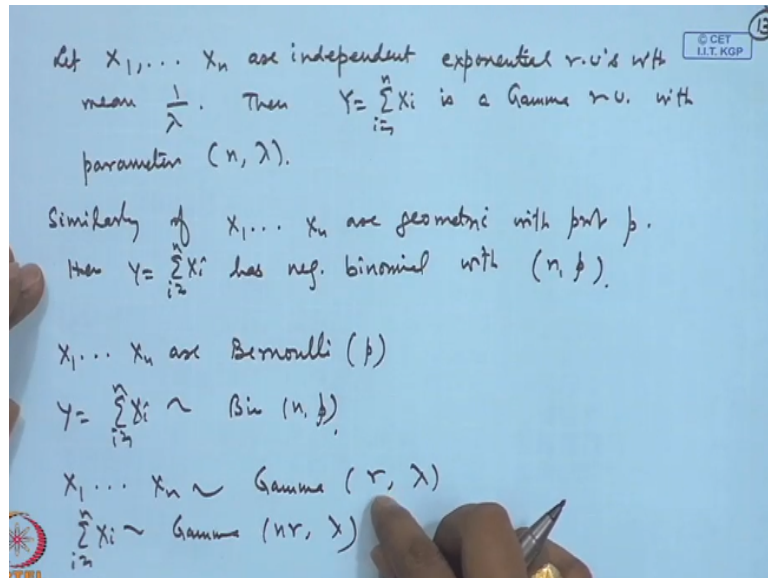 © CET
I.I.T. KGP
13
Let X₁, ... Xₙ are independent exponential r.u's with
mean 1/λ. Then Y = Σᵢ₌₁ⁿ Xi is a Gamma r.u. with
parameters (n, λ).
Similarly if X₁ ... Xₙ are geometric with prob p.
then Y = Σᵢ₌₁ⁿ Xi has neg. binomial with (n, p).
X₁ ... Xₙ are Bernoulli (p)
Y = Σᵢ₌₁ⁿ Xi ~ Bin (n, p).
X₁ ... Xₙ ~ Gamma (r, λ)
Σᵢ₌₁ⁿ Xi ~ Gamma (nr, λ)